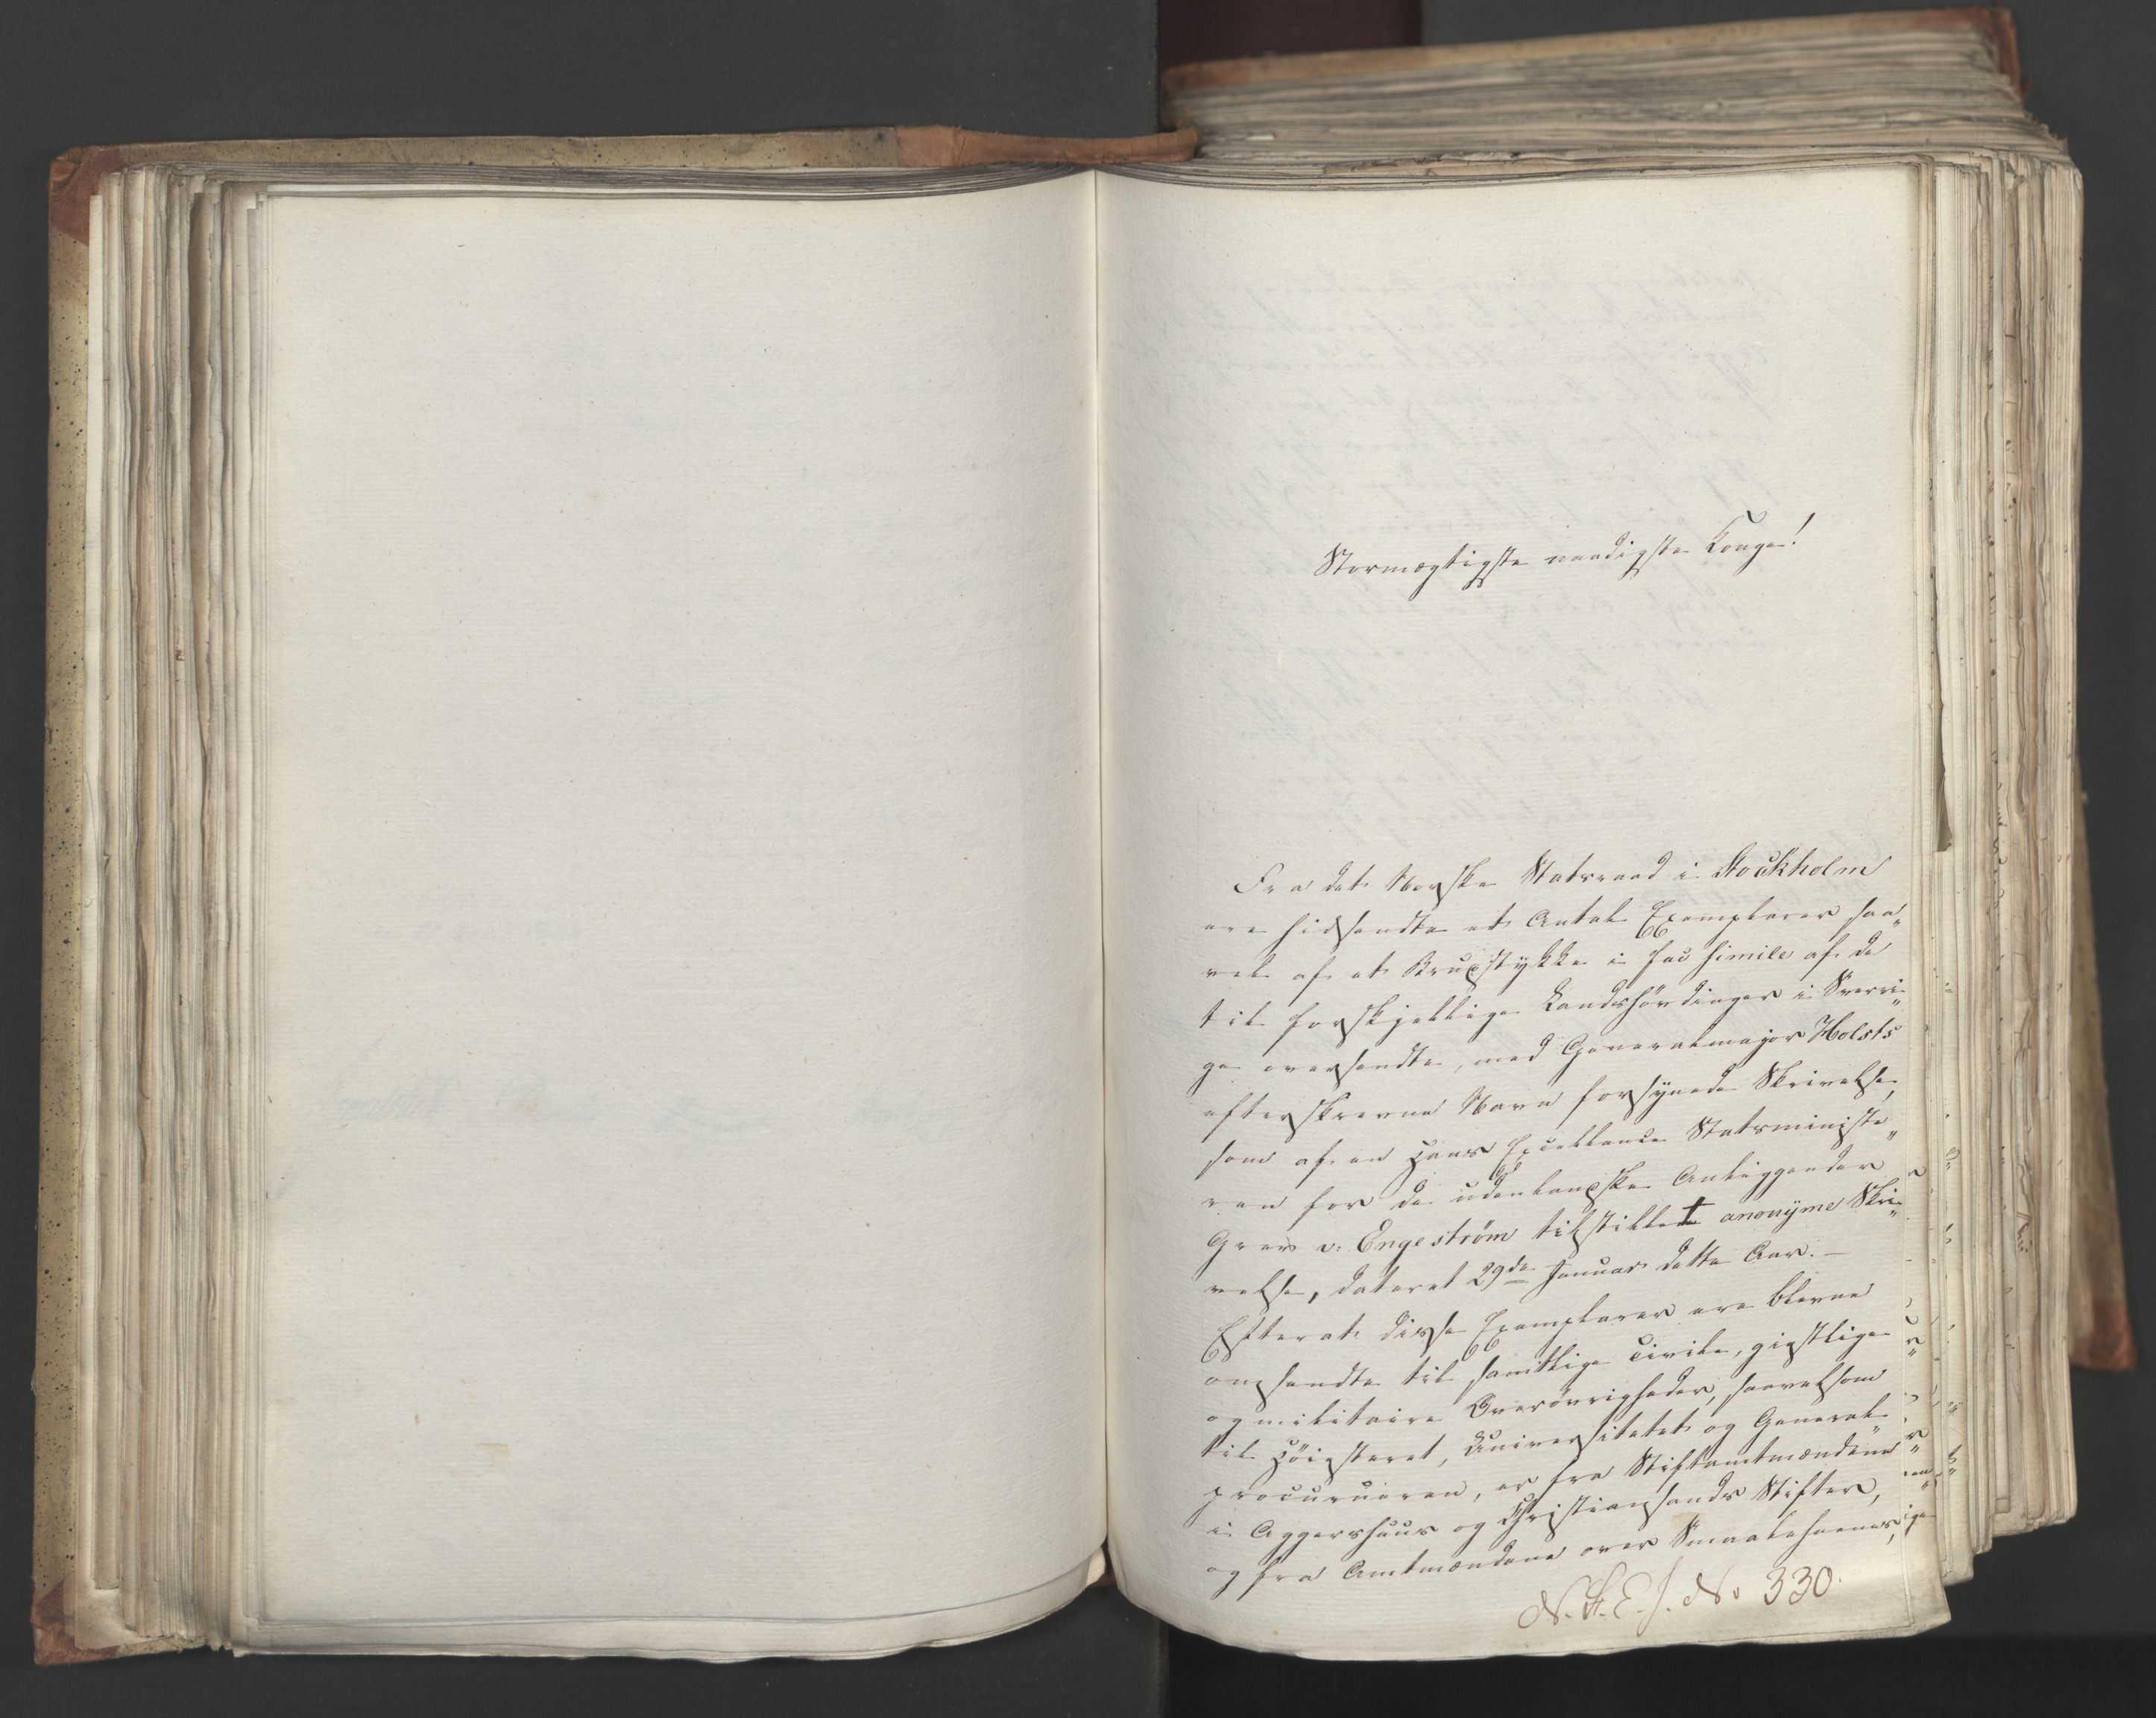 Stormægtigste naadigste Konge!
Fra det Norske Statsraad i Stockholm
ere hidsendte et Antal Exemplarer saa„
vel af et Brudstykke i fac simile af de
til forskjellige Landshövdinger i Sverri„
ge oversendte, med Generalmajor Holsts
efterskrevne Navn forsynede Skrivelse,
som af en Hans Excellence Statsministe„
ren for de udenlandske Anliggender
Grev v: Engeström tilstillet anonÿme Skri„
velse, dateret 29de Januar dette Aar. —
Efterat disse Exemplarer ere blevne
omsendte til samtlige civile, gistlige
og militaire Överövrigheder, saavelsom
til Höiesteret, Universitetet og General„
procureuren, er fra Stiftamtmændene
i Aggershuus og Christiansands Stifter,
og fra Amtmændene over Smaalehnenes,
N. S. E. J. No 330.